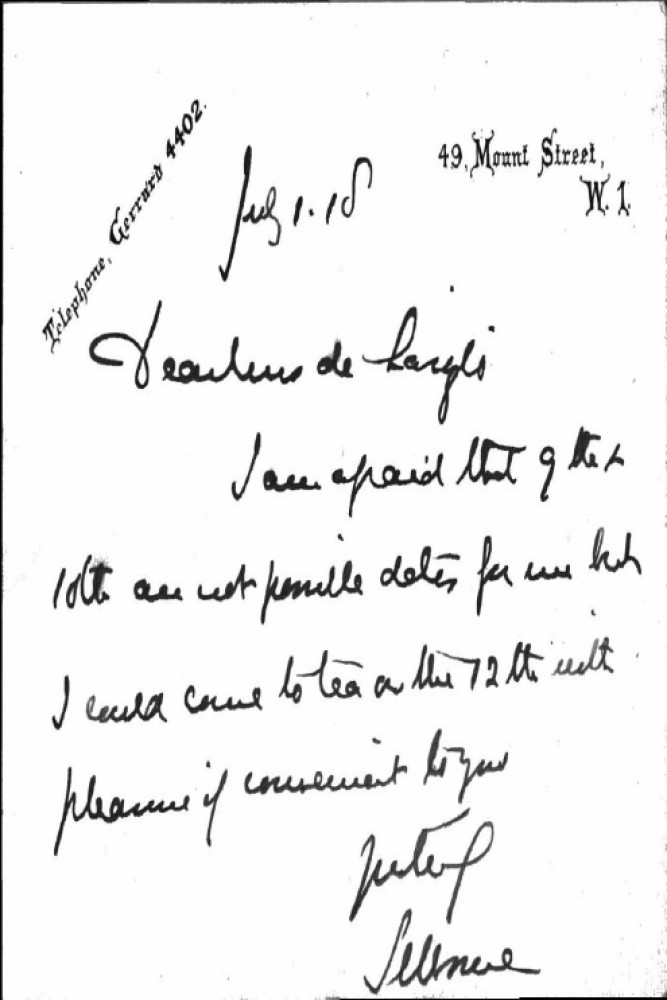 Telephone, Gerrard 4402.
49, Mount Street,
W. 1.
July 1. 18
Dear de László
I am afraid that 9th &
10th are not possible dates for me but
I could come to tea on the 12th with
pleasure if convenient to you
Selborne